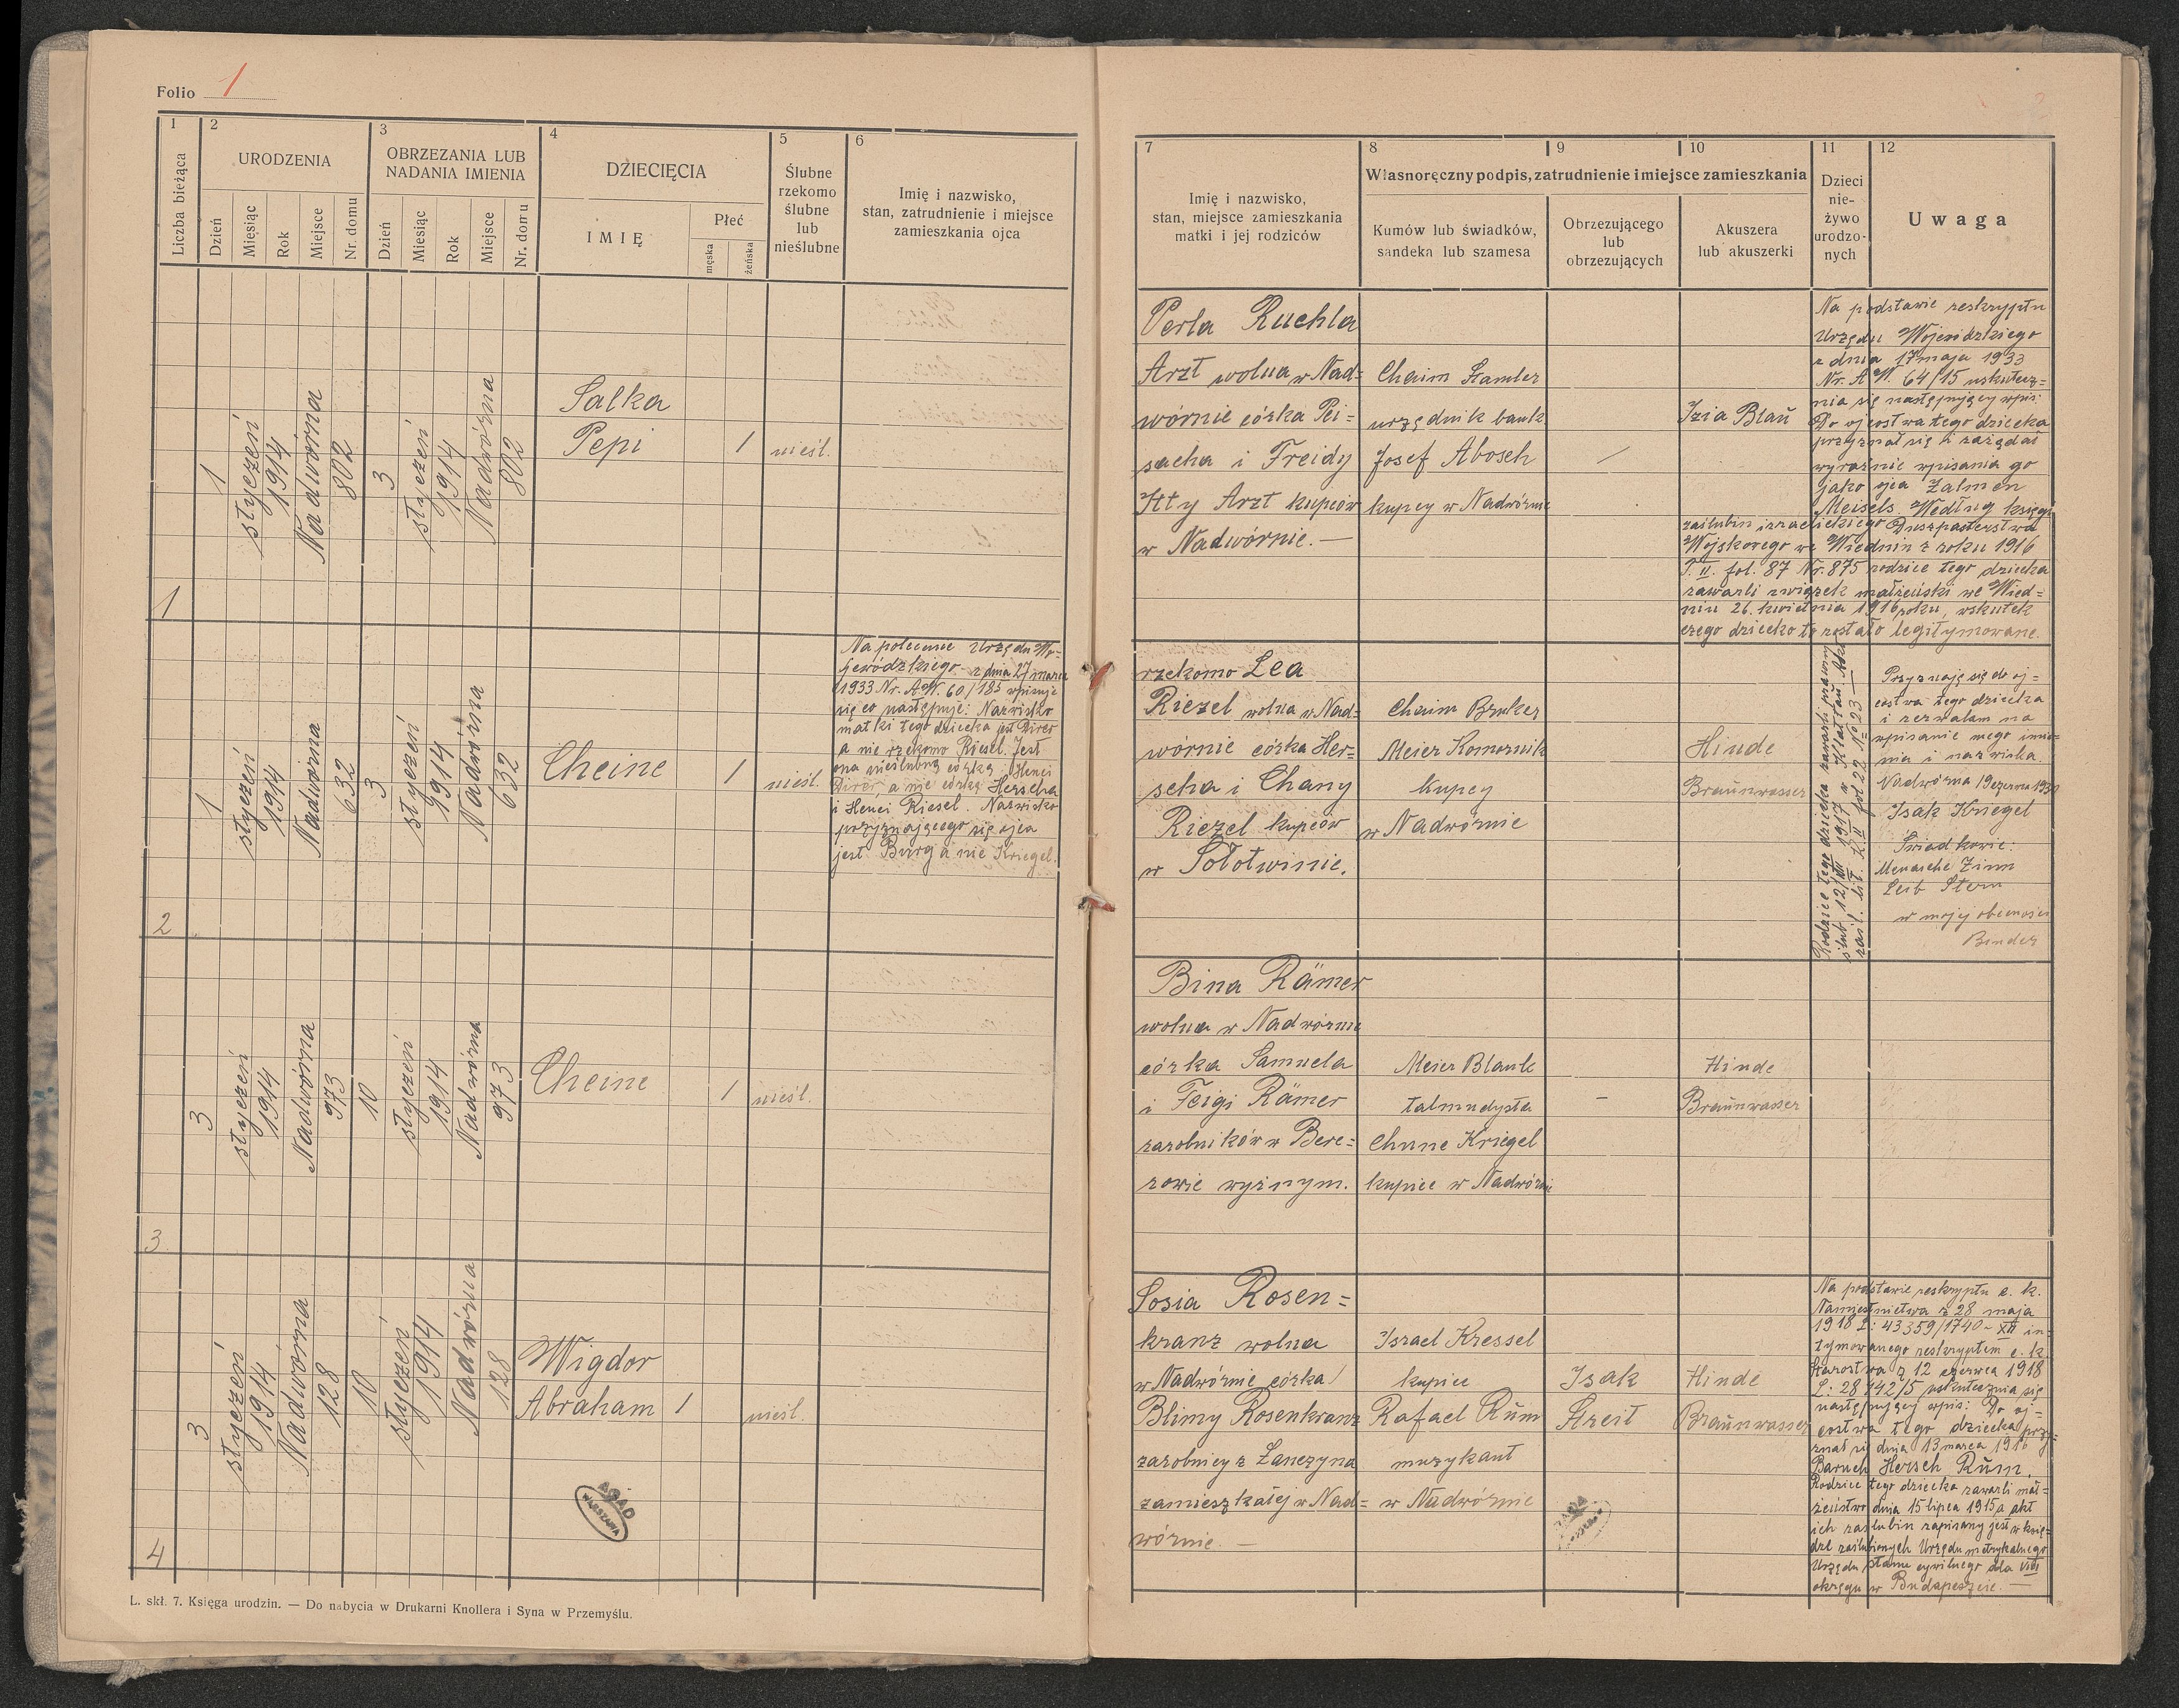 Folio 1
1
2
3
4
5
6
Liczba bieżąca
URODZENIA
Dzień
Miesiąc
Rok
Miejsce
Nr. domu
OBRZEZANIA LUB
NADANIA IMIENIA
Dzień
Miesiąc
Rok
Miejsce
Nr. domu
DZIECIĘCIA
IMIĘ
Płeć
męska
żeńska
Ślubne
rzekomo
ślubne
lub
nieślubne
Imię i nazwisko,
stan, zatrudnienie i miejsce
zamieszkania ojca
7
8
9
10
11
12
Imię i nazwisko,
stan, miejsce zamieszkania
matki i jej rodziców
Własnoręczny podpis, zatrudnienie i miejsce zamieszkania
Kumów lub świadków,
sandeka lub szamesa
Obrzezującego
lub
obrzezujących
Akuszera
lub akuszerki
Dzieci
nie-
żywo
urodzo-
nych
Uwaga
1
1
styczeń
1914
Nadwórna
802
3
styczeń
1914
Nadwórna
802
Salka
Pepi
1
nieśl.
Perla Ruchla
Arzt wolna w Nad=
wórnie córka Pei=
sacha i Freidy
Itty Arzt kupców
w Nadwórnie. —
Chaim Hamler
urzędnik bank
Josef Abosch
kupcy w Nadwórnie
/
Izia Blau
Na podstawie reskryptu
Urzędu Wojewódzkiego
z dnia 17 maja 1933
Nr. AW. 64/15 uskutecz=
nia się następujący wpis:
Do ojcostwa tego dziecka
przyznał się i zażądał
wyraźnie wpisania go
jako ojca Zalmen
Meisels. Według księgi
zaślubin izraelickiego Duszpasterstwa
Wojskowego we Wiedniu z roku 1916
T. II. fol. 87 Nr. 875 rodzice tego dziecka
zawarli związek małżeński we Wied=
niu 26. kwietnia 1916 roku, wskutek
czego dziecko to zostało legitymowane.
2
1
styczeń
1914
Nadwórna
632
3
styczeń
1914
Nadwórna
632
Cheine
1
nieśl.
Na polecenie Urzędu Wo-
jewódzkiego z dnia 27 marca
1933 Nr. AW. 60/185 wpisuje
się co następuje: Nazwisko
matki tego dziecka jest Direr
a nie rzekomo Riesel. Jest
ona nieślubną córką Henci
Direr, a nie córką Herscha
i Henci Riesel. Nazwisko
przyznającego się ojca
jest Burg a nie Kriegel.
rzekomo Lea
Riezel wolna w Nad=
wórnie córka Her=
scha i Chany
Riezel kupców
w Sołotwinie.
Chaim Bruker
Meier Komornik
kupcy
w Nadwórnie
Hinde
Braunwasser
Rodzice tego dziecka zawarli prawny
ślub 12/III 1917 w
zaśl. lit. II fol 22 No 23 —
Przyznaję się do oj=
costwa tego dziecka
i zezwalam na
wpisanie mego imie=
nia i nazwiska.
Isak Kriegel
Świadkowie:
Menasche Zinn
Leib Stern
w mojej obecności
Binder
3
3
styczeń
1914
Nadwórna
973
10
styczeń
1914
Nadwórna
973
Cheine
1
nieśl.
Bina Rämer
wolna w Nadwórnie
córka Samuela
i Feigi Rämer
zarobników w Bere=
zowie wyżnym.
Meier Blank
talmudysta
Chune Kriegel
kupiec w Nadwórnie
–
Hinde
Braunwasser
4
3
styczeń
1914
Nadwórna
128
10
styczeń
1914
Nadwórna
128
Wigdor
Abraham
1
nieśl.
Sosia Rosen=
kranz wolna
w Nadwórnie córka
Blimy Rosenkranz
zarobnicy z Łanczyna
zamieszkałej w Nad=
wórnie. —
Israel Kressel
kupiec
Rafael Rum
muzykant
w Nadwórnie
Isak
Streit
Hinde
Braunwasser
Na podstawie reskryptu c. k.
Namiestnictwa z 28 maja
1918 L: 43359/1740-XII in=
tymowanego reskryptem c. k.
Starostwa z 12 czerwca 1918
L: 28142/5 uskutecznia się
następujący wpis: Do oj=
costwa tego dziecka przy=
znał się dnia 13 marca 1916
Baruch Hersch Rum.
Rodzice tego dziecka zawarli mał=
żeństwo dnia 15 lipca 1915 a akt
ich zaślubin zapisany jest w księ=
dze zaślubionych Urzędu metrykalnego
Urzędu stanu cywilnego dla VIII
okręgu w Budapeszcie. —
AGAD
WARSZAWA
L. skł. 7. Księga urodzin. — Do nabycia w Drukarni Knollera i Syna w Przemyślu.